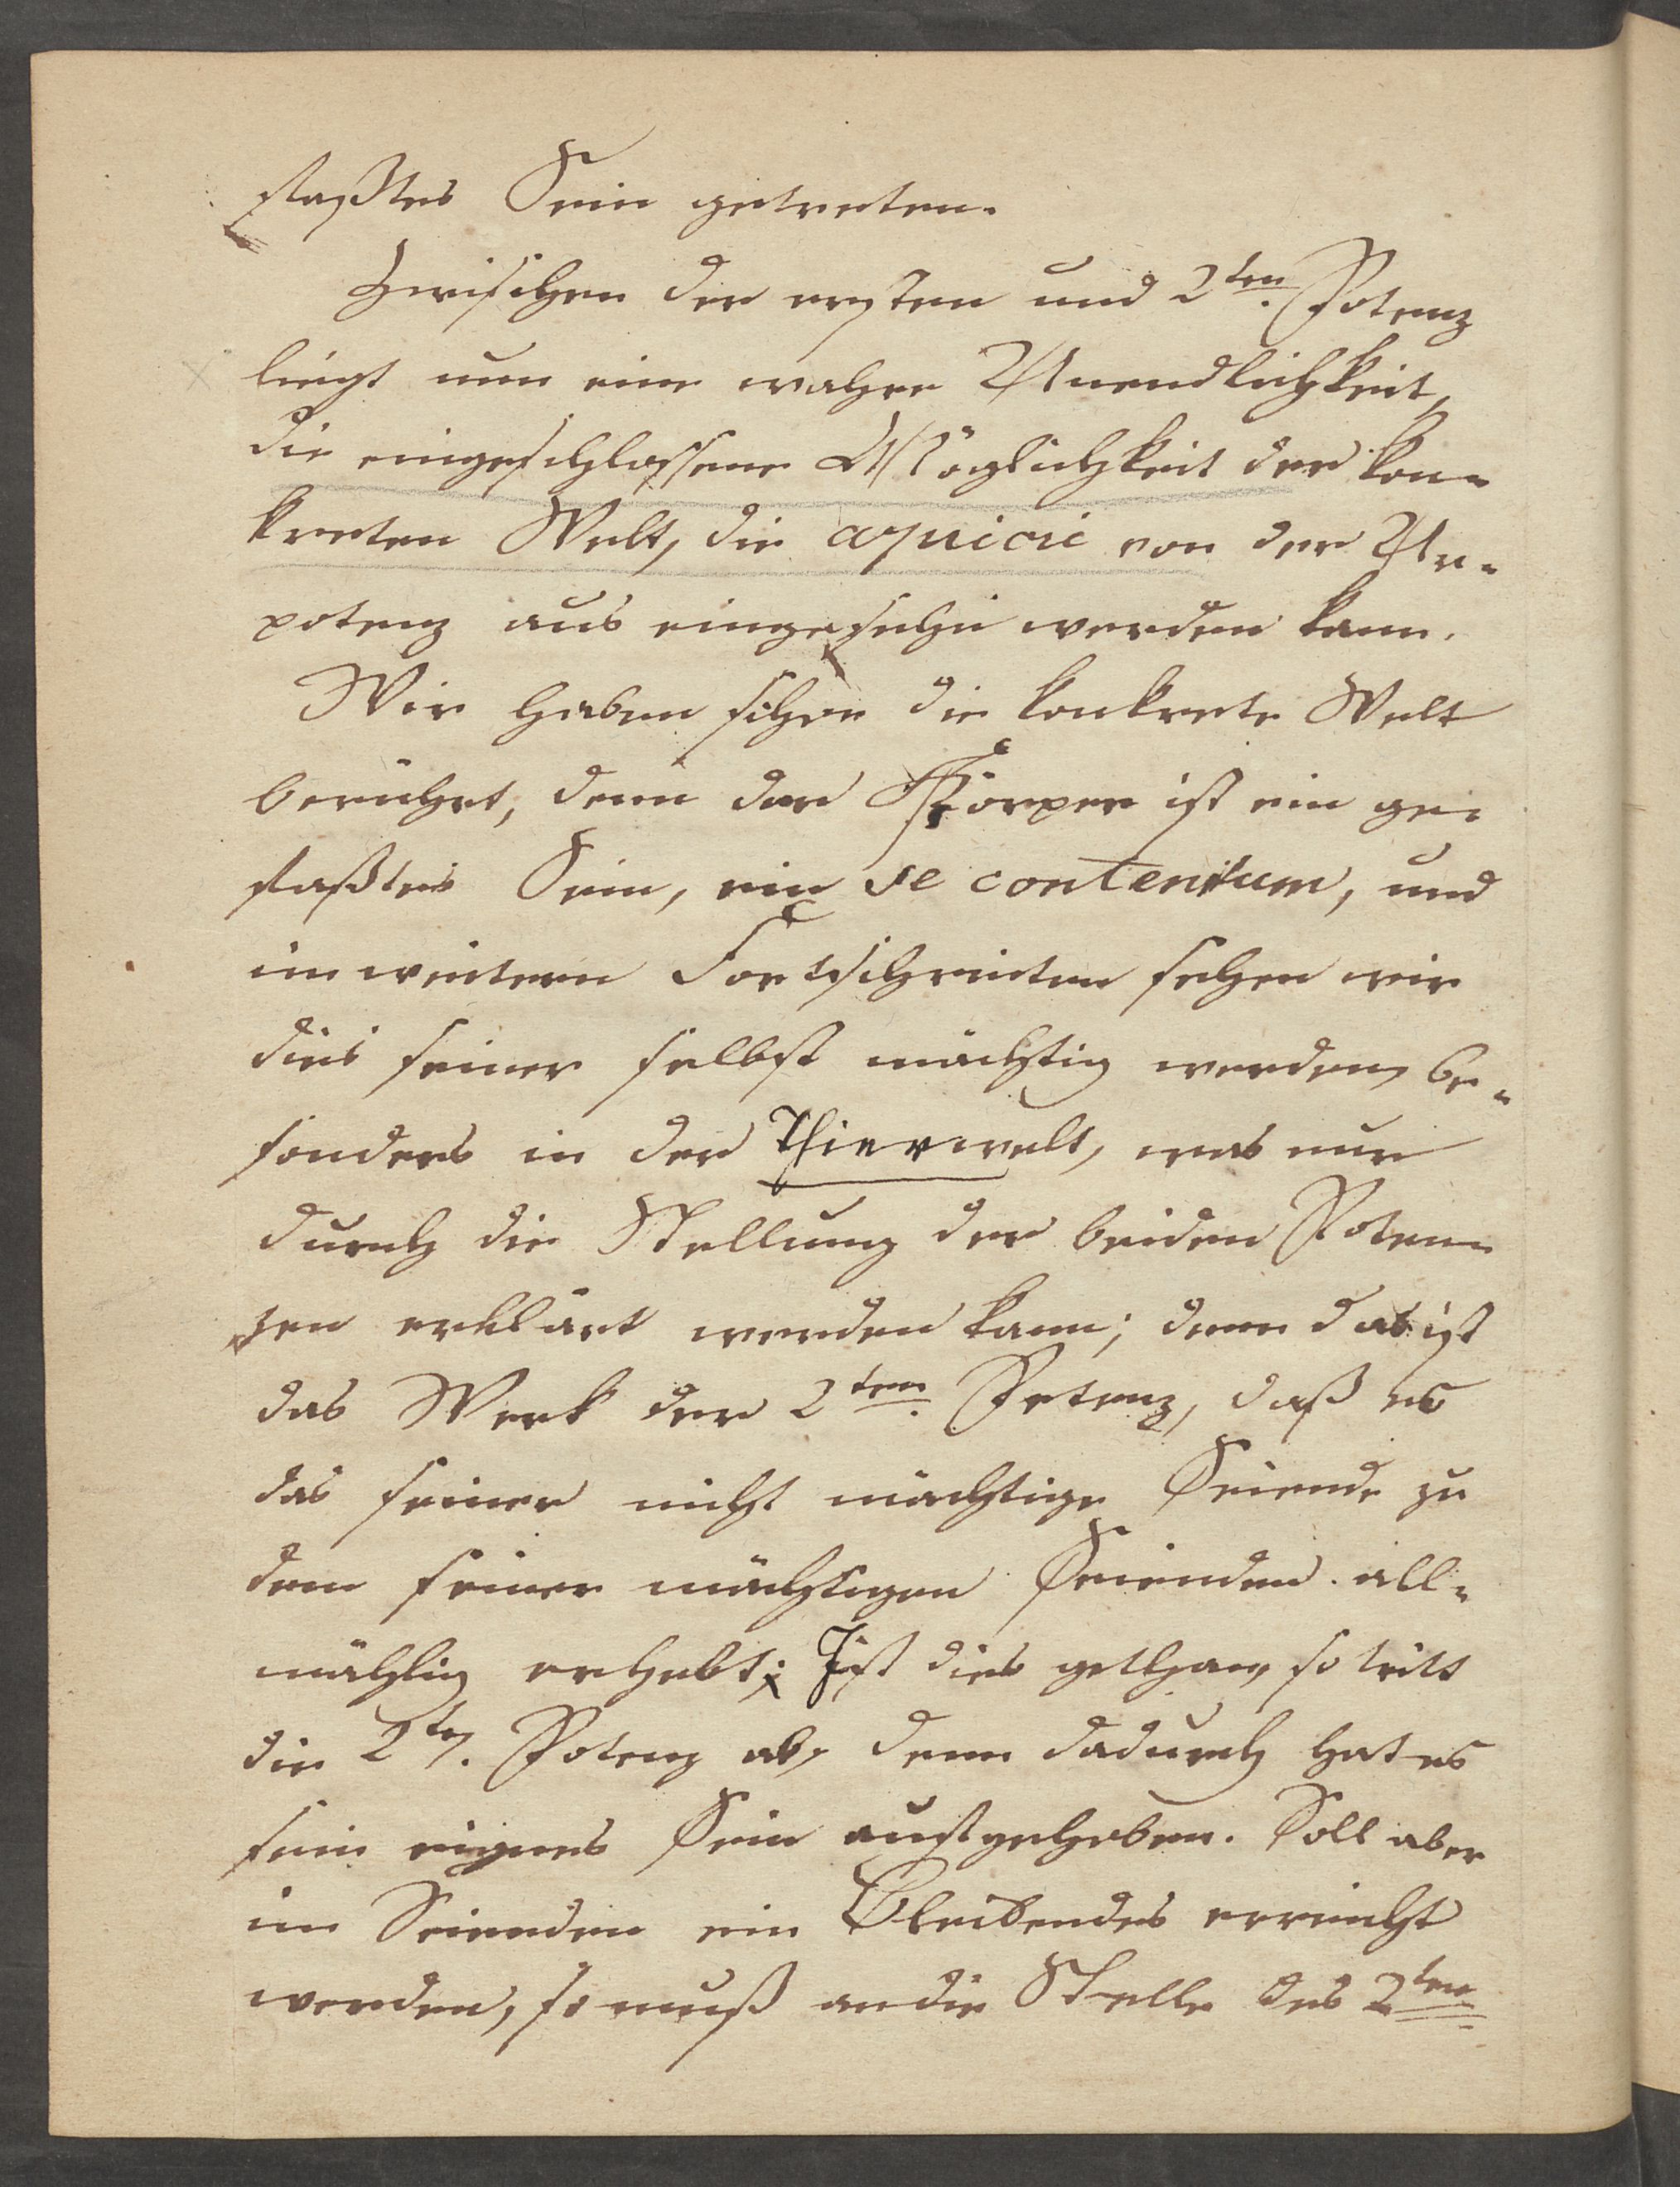 faßtes Sein getreten.
Zwischen der ersten und 2ten. Potenz
liegt nun eine wahre Unendlichkeit,
die eingeschlossene Möglichkeit der kon-
kreten Welt, die apriori von der Ur-
potenz aus eingesehn werden kann.
Wir haben schon die konkrete Welt
berührt, denn der Körper ist ein ge-
faßtes Sein, ein se contentum, und
im weitern Fortschreiten sehen wir
dies seiner selbst mächtig werden, be-
sonders in der Thierwelt, was nur
durch die Stellung der beiden Poten-
zen erklärt werden kann; denn das ist
das Werk der 2ten. Potenz, daß es
das seiner nicht mächtige Seiende zu
dem seiner mächtigen Seienden all-
mählig erhebt; Ist dies gethan, so tritt
die 2te. Potenz ab, denn dadurch hat es
sein eignes Sein aufgehoben. Soll aber
im Seienden ein Bleibendes erreicht
werden, so muß an die Stelle des 2ten